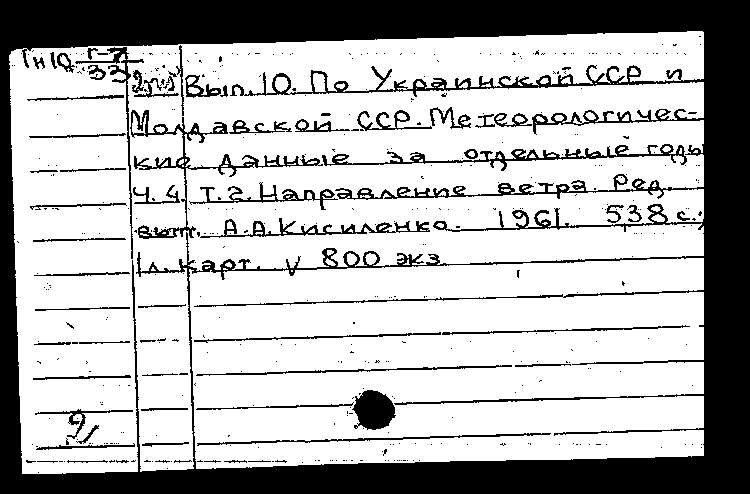 Гн10 Г-7
33
Вып. 10. По Украинской ССР и
Молдавской ССР. Метеорологичес-
кие данные за отдельные годы
Ч. 4. Т. 2. Направление ветра. Ред.
вып. А.А. Кисиленко. 1961. 538 с.;
1 л. карт. V 800 экз.
2